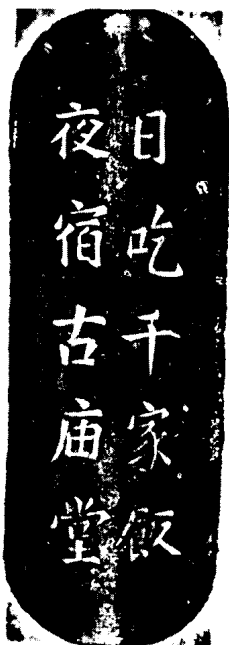 日吃千家飯
夜宿古庙堂